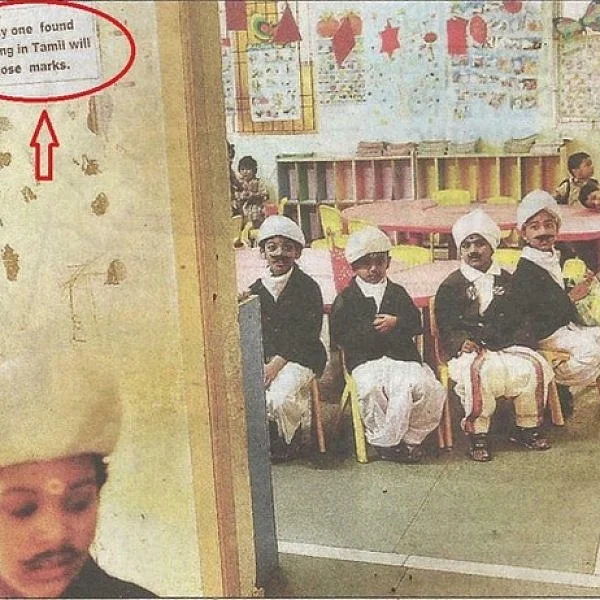 y one found
ng in Tamil will
ose marks.